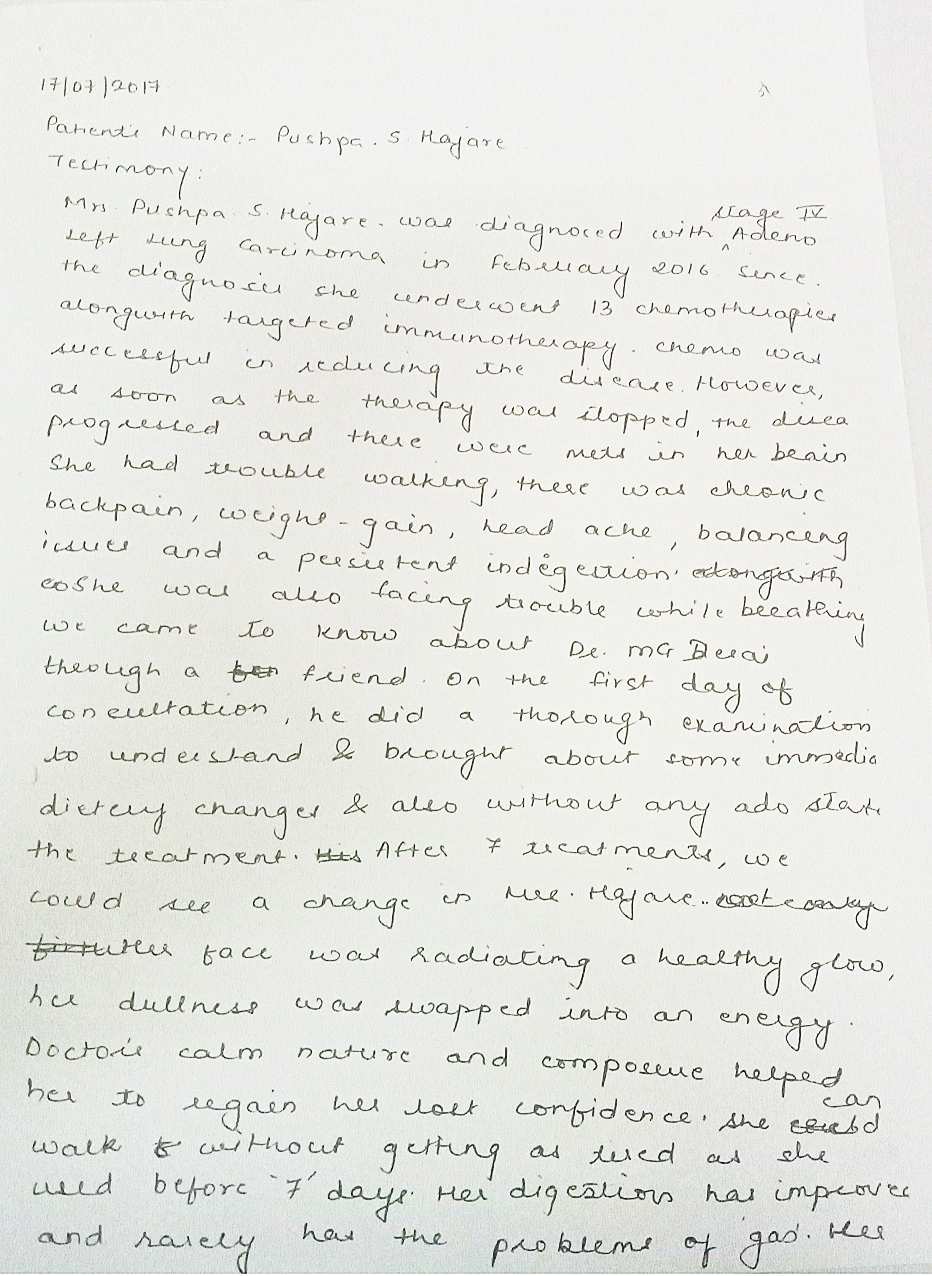 17/07/2017
Patient's Name:- Pushpa. S. Hajare
Testimony:
Mrs. Pushpa S. Hajare. was diagnosed with stage IV Adeno
Left Lung Carcinoma in February 2016 since.
the diagnosis she underwent 13 chemotherapies
alongwith targeted immunotherapy. chemo was
successful in reducing the disease. However,
as soon as the therapy was stopped, the disea
progressed and there were mets in her brain
She had trouble walking, there was chronic
backpain, weight-gain, head ache, balancing
issues and a persistent indegestion. alongwith
She was also facing trouble while breathing
we came to know about Dr. MG Desai
through a friend. On the first day of
consultation, he did a thorough examination
to understand & brought about some immedia
dietery changes & also without any ado start
the treatment. His After 7 treatments, we
could see a change in Mrs. Hajare.. not only
her face was radiating a healthy glow,
her dullness was swapped into an energy.
Doctor's calm nature and composure helped
her to regain her lost confidence. She could can
walk without getting as tired as she
used before '7' days. Her digestion has improved
and rarely has the problems of gas. Her